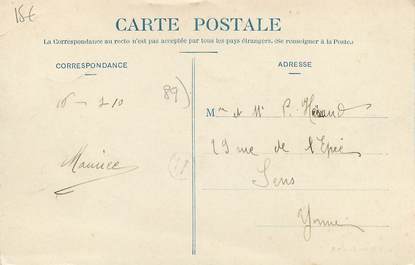 15€
CARTE POSTALE
La Correspondance au recto n'est pas acceptée par tous les pays étrangers. (Se renseigner à la Poste.)
CORRESPONDANCE
ADRESSE
16 - 2-10
89)
Maurice
Mr et Me P.
29 rue de l'Epée
Sens
Yonne